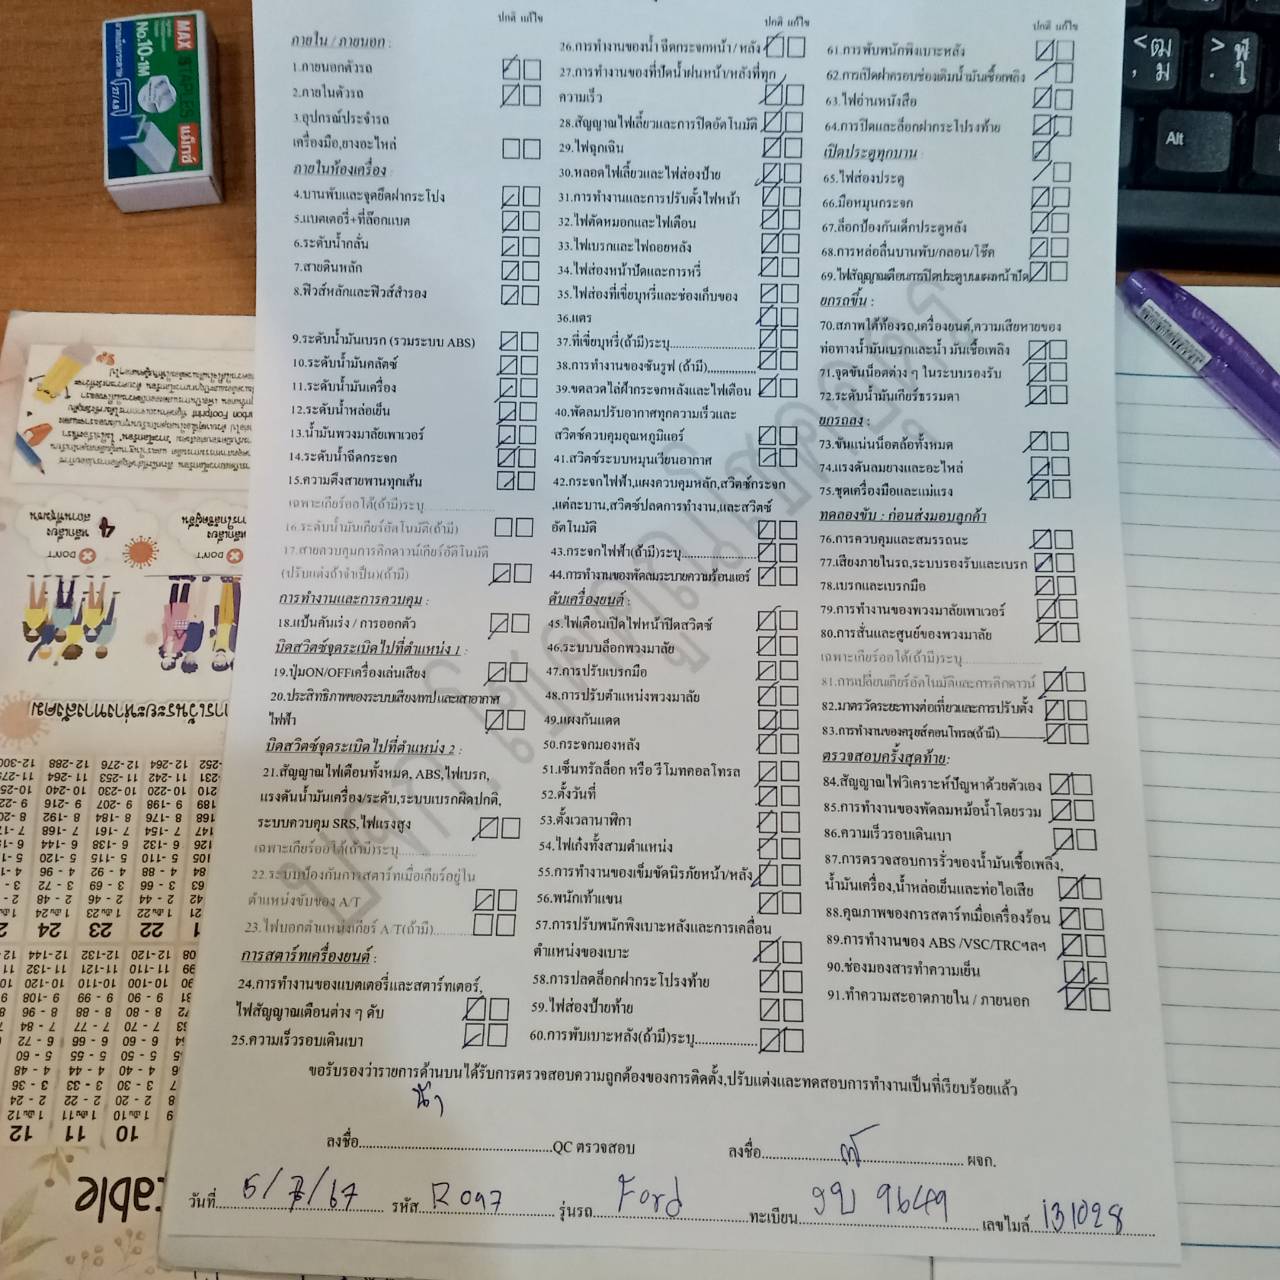 ปกติ แก้ไข
ภายใน / ภายนอก :
1.ภายนอกตัวรถ
2.ภายในตัวรถ
3.อุปกรณ์ประจำรถ
เครื่องมือ,ยางอะไหล่
ภายในห้องเครื่อง
4.บานพับและจุดยึดฝากระโปง
5.แบตเตอรี่+ที่ล๊อกแบต
6.ระดับน้ำกลั่น
7.สายดินหลัก
8.ฟิวส์หลักและฟิวส์สำรอง
9.ระดับน้ำมันเบรก (รวมระบบ ABS)
10.ระดับน้ำมันคลัตซ์
11.ระดับน้ำมันเครื่อง
12.ระดับน้ำหล่อเย็น
13.น้ำมันพวงมาลัยเพาเวอร์
14.ระดับน้ำฉีดกระจก
15.ความตึงสายพานทุกเส้น
เฉพาะเกียร์ออโต้(ถ้ามี)ระบุ
16.ระดับน้ำมันเกียร์อัตโนมัติ(ถ้ามี)
17.สายควบคุมการคิกดาวน์เกียร์อัตโนมัติ
(ปรับแต่งถ้าจำเป็น)(ถ้ามี)
การทำงานและการควบคุม :
18.แป้นคันเร่ง / การออกตัว
บิดสวิตซ์จุดระเบิดไปที่ตำแหน่ง 1 :
19.ปุ่มON/OFFเครื่องเล่นเสียง
20.ประสิทธิภาพของระบบเสียงเทป และเสาอากาศ
ไฟฟ้า
บิดสวิตซ์จุดระเบิดไปที่ตำแหน่ง 2 :
21.สัญญาณไฟเตือนทั้งหมด, ABS,ไฟเบรก,
แรงดันน้ำมันเครื่อง/ระดับ,ระบบเบรกผิดปกติ,
ระบบควบคุม SRS,ไฟแรงสูง
เฉพาะเกียร์ออโต้(ถ้ามี)ระบุ
22.ระบบป้องกันการสตาร์ทเมื่อเกียร์อยู่ใน
ตำแหน่งขับของ A/T
23.ไฟบอกตำแหน่งเกียร์ A/T(ถ้ามี)
การสตาร์ทเครื่องยนต์ :
24.การทำงานของแบตเตอรี่และสตาร์ทเตอร์,
ไฟสัญญาณเตือนต่าง ๆ ดับ
25.ความเร็วรอบเดินเบา
ปกติ แก้ไข
26.การทำงานของน้ำ ฉีดกระจกหน้า / หลัง
27.การทำงานของที่ปัดน้ำฝนหน้า/หลังที่ทุก
ความเร็ว
28.สัญญาณไฟเลี้ยวและการปิดอัตโนมัติ
29.ไฟฉุกเฉิน
30.หลอดไฟเลี้ยวและไฟส่องป้าย
31.การทำงานและการปรับตั้งไฟหน้า
32.ไฟตัดหมอกและไฟเตือน
33.ไฟเบรกและไฟถอยหลัง
34.ไฟส่องหน้าปัดและการหรี่
35.ไฟส่องที่เขี่ยบุหรี่และช่องเก็บของ
36.แตร
37.ที่เขี่ยบุหรี่(ถ้ามี)ระบุ
38.การทำงานของซันรูฟ (ถ้ามี)
39.ขดลวดไล่ฝ้ากระจกหลังและไฟเตือน
40.พัดลมปรับอากาศทุกความเร็วและ
สวิตซ์ควบคุมอุณหภูมิแอร์
41.สวิตซ์ระบบหมุนเวียนอากาศ
42.กระจกไฟฟ้า,แผงควบคุมหลัก,สวิตซ์กระจก
,แต่ละบาน,สวิตซ์ปลดการทำงาน,และสวิตซ์
อัตโนมัติ
43.กระจกไฟฟ้า(ถ้ามี)ระบุ
44.การทำงานของพัดลมระบายความร้อนแอร์
ดับเครื่องยนต์ :
45.ไฟเตือนเปิดไฟหน้าปิดสวิตซ์
46.ระบบบล็อกพวงมาลัย
47.การปรับเบรกมือ
48.การปรับตำแหน่งพวงมาลัย
49.แผงกันแดด
50.กระจกมองหลัง
51.เซ็นทรัลล็อก หรือ รีโมทคอลโทรล
52.ตั้งวันที่
53.ตั้งเวลานาฬิกา
54.ไฟเก๋งทั้งสามตำแหน่ง
55.การทำงานของเข็มขัดนิรภัยหน้า/หลัง
56.พนักเท้าแขน
57.การปรับพนักพิงเบาะหลังและการเคลื่อน
ตำแหน่งของเบาะ
58.การปลดล็อกฝากระโปรงท้าย
59.ไฟส่องป้ายท้าย
60.การพับเบาะหลัง(ถ้ามี)ระบุ
ปกติ แก้ไข
61.การพับพนักพิงเบาะหลัง
62.การเปิดฝาครอบช่องเติมน้ำมันเชื้อเพลิง
63.ไฟอ่านหนังสือ
64.การปิดและล็อกฝากระโปรงท้าย
เปิดประตูทุกบาน
65.ไฟส่องประตู
66.มือหมุนกระจก
67.ล็อกป้องกันเด็กประตูหลัง
68.การหล่อลื่นบานพับ/กลอน/โช๊ค
69.ไฟสัญญาณเตือนการปิดประตูบนแผงหน้าปัด
ยกรถขึ้น :
70.สภาพใต้ท้องรถ,เครื่องยนต์,ความเสียหายของ
ท่อทางน้ำมันเบรกและน้ำ มันเชื้อเพลิง
71.จุดขันน็อตต่าง ๆ ในระบบรองรับ
72.ระดับน้ำมันเกียร์ธรรมดา
ยกรถลง :
73.ขันแน่นน็อตล้อทั้งหมด
74.แรงดันลมยางและอะไหล่
75.ชุดเครื่องมือและแม่แรง
ทดลองขับ : ก่อนส่งมอบลูกค้า
76.การควบคุมและสมรรถนะ
77.เสียงภายในรถ,ระบบรองรับและเบรก
78.เบรกและเบรกมือ
79.การทำงานของพวงมาลัยเพาเวอร์
80.การสั่นและศูนย์ของพวงมาลัย
เฉพาะเกียร์ออโต้(ถ้ามี)ระบุ
81.การเปลี่ยนเกียร์อัตโนมัติและการคิกดาวน์
82.มาตรวัดระยะทางต่อเที่ยวและการปรับตั้ง
83.การทำงานของครุยส์คอนโทรล(ถ้ามี)
ตรวจสอบครั้งสุดท้าย:
84.สัญญาณไฟวิเคราะห์ปัญหาด้วยตัวเอง
85.การทำงานของพัดลมหม้อน้ำโดยรวม
86.ความเร็วรอบเดินเบา
87.การตรวจสอบการรั่วของน้ำมันเชื้อเพลิง,
น้ำมันเครื่อง,น้ำหล่อเย็นและท่อไอเสีย
88.คุณภาพของการสตาร์ทเมื่อเครื่องร้อน
89.การทำงานของ ABS /VSC/TRCฯลฯ
90.ช่องมองสารทำความเย็น
91.ทำความสะอาดภายใน / ภายนอก
ขอรับรองว่ารายการด้านบนได้รับการตรวจสอบความถูกต้องของการติดตั้ง,ปรับแต่งและทดสอบการทำงานเป็นที่เรียบร้อยแล้ว
ลงชื่อ QC ตรวจสอบ ลงชื่อ ผจก.
วันที่ 5/7/67 รหัส R097 รุ่นรถ Ford ทะเบียน 9649 เลขไมล์ 131028
MAX STAPLES แม็กซ์
No.10-1M
Alt